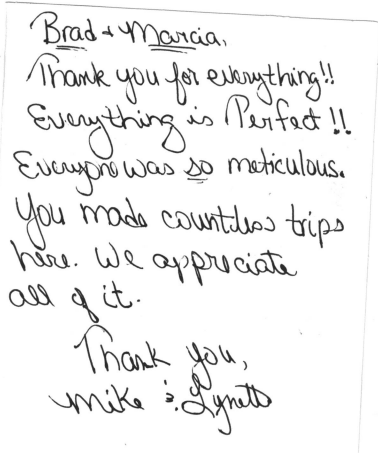 Brad & Marcia,
Thank you for everything!!
Everything is Perfect!!
Everyone was so meticulous.
You made countless trips
here. We appreciate
all of it.
Thank you,
Mike & Lynette